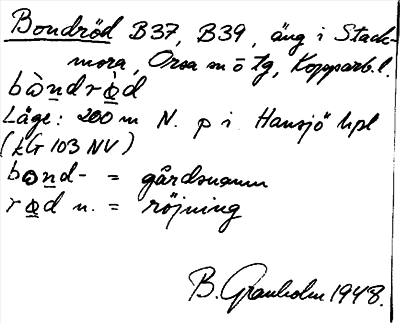 Bondröd B37, B39, äng i Stack-
mora, Orsa m ö tg, Kopparb. l.
bò̱ndrò̱d
Läge: 200 m N. p i. Hansjö hpl
(kG 103 NV)
bo̱nd- = gårdsnamn
rø̱d n. = röjning
B. Granholm 1948.